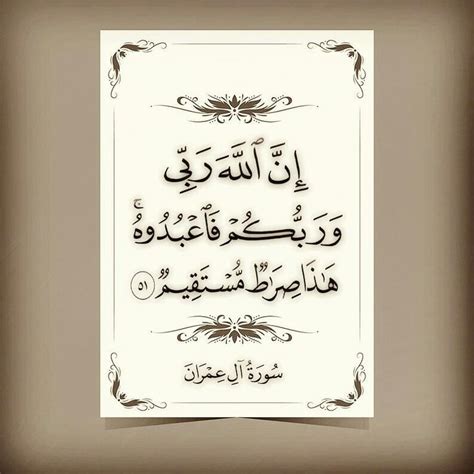 إِنَّ ٱللَّهَ رَبِّى
وَرَبُّكُمْ فَٱعْبُدُوهُ ۚ
هَٰذَا صِرَٰطٌ مُّسْتَقِيمٌ ٥١
سُورَةُ آلِ عِمْرَانَ